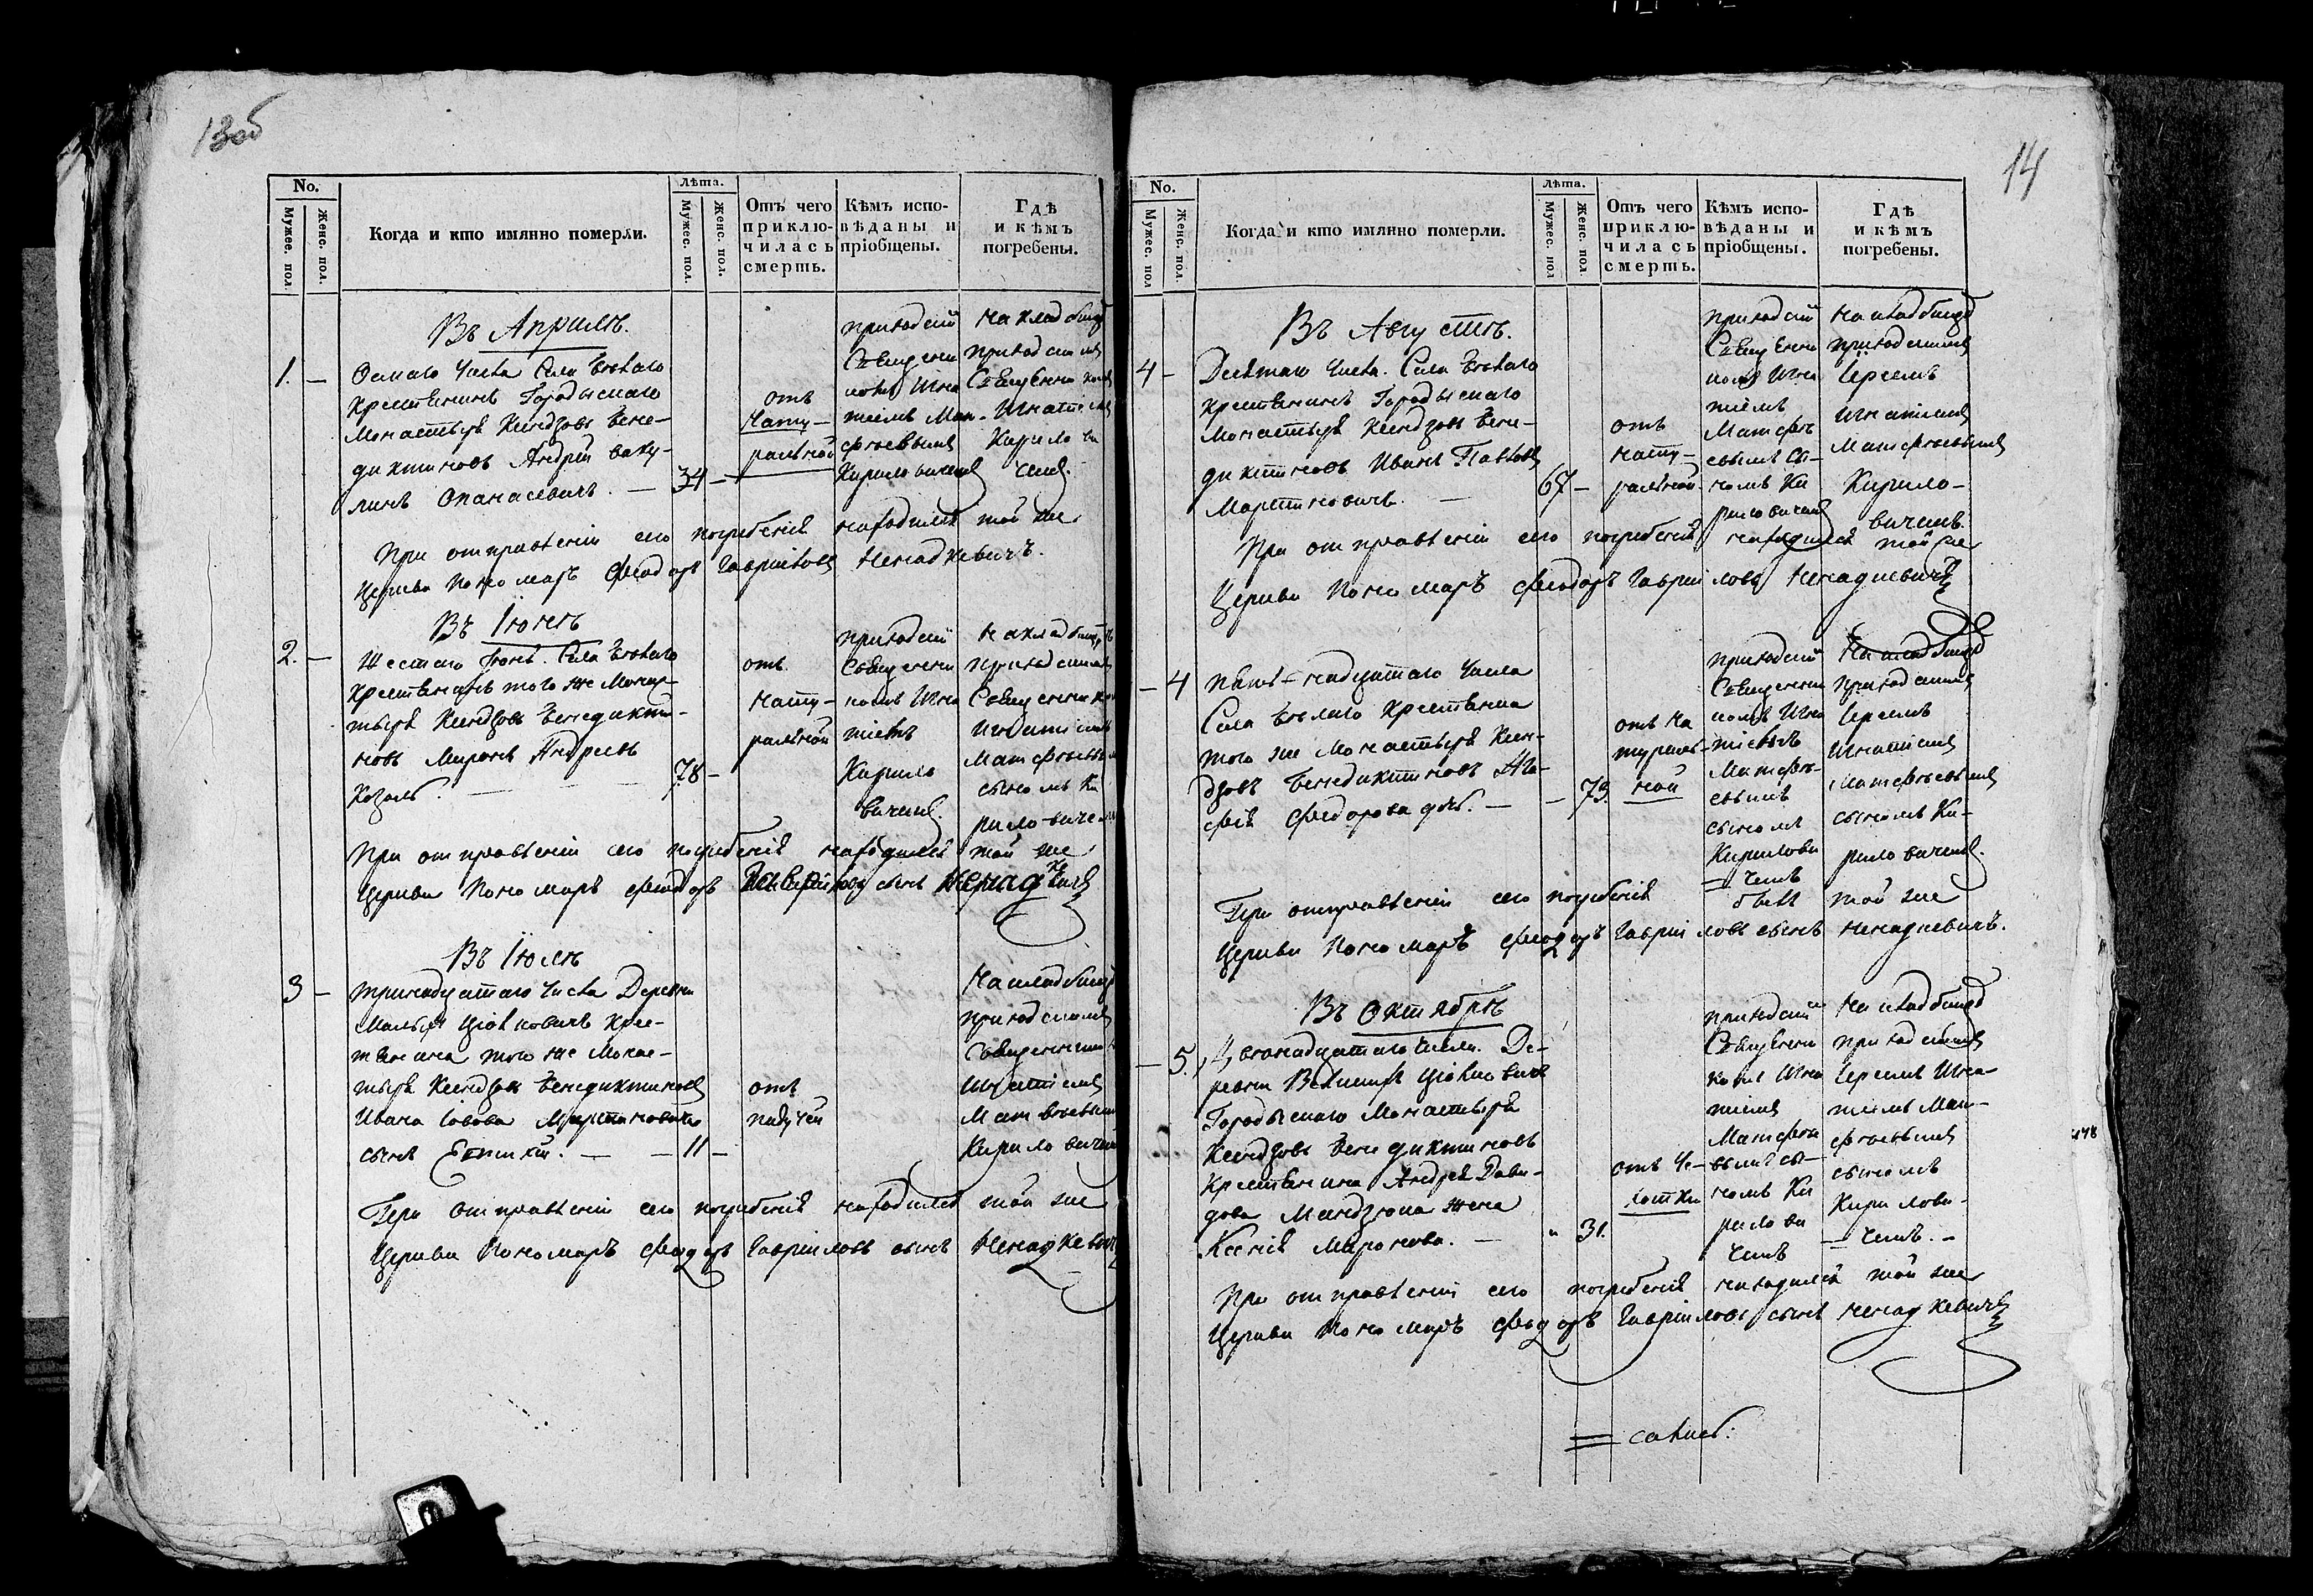 13об
No.
Мужес. пол.
Женс. пол.
Когда и кто имянно померли.
Лѣта.
Мужес. пол.
Женс. пол.
Отъ чего
приклю-
чилась
смерть.
Кѣмъ испо-
вѣданы и
пріобщены.
Гдѣ
и кѣмъ
погребены.
Въ Априлѣ.
1. —
Осмаго Числа Села Бѣлаго
Крестьянинъ Городыскаго
Монастыря Ксендзовъ Бене-
диктиновъ Андрей Ваку-
линъ Опанасевичъ. — 34 —
отъ
Нату-
ральной
приходскій
Священни
комъ Игна
тіемъ Мат-
фѣевымъ
Кириловичемъ
На кладбищѣ
приходскимъ
Священникомъ
Игнатіемъ
Кирилови
чемъ.
При отправленіи сего погребенія находился той же
Церкви Пономарь Феодоръ Гавріиловъ Ненадкевичъ.
Въ Іюнѣ
2. —
Шестаго Іюня. Села Бѣлаго
Крестьянинъ того же Монас-
тыря Ксендзовъ Бенедикти-
новъ Миронъ Андреевъ
Козолъ. — — — 78 —
отъ
нату-
ральной
приходскій
Священни
комъ Игна
тіемъ
Кирило
вичемъ.
На кладбищѣ
приходскимъ
Священником
Игнатіемъ
Матфѣевым
сыномъ Ки
рило-вичемъ
При отправленіи сего погребенія находился той же
Церкви Пономарь Феодоръ Гавріиловъ сынъ Ненадкевичъ
Въ Іюлѣ
3 —
тринадцатаго Числа Деревни
Малыхъ Цюлковичъ Крес-
тьянина того же Монас-
тыря Ксендзовъ Бенедиктиновъ
Ивана Савова Мартиновича
сынъ — — 11 —
отъ
падучей
На кладбищѣ
приходскимъ
Священником
Игнатіемъ
Матфѣевым
Кириловичем
При отправленіи сего погребенія находился той же
Церкви Пономарь Феодоръ Гавріиловъ сынъ Ненадкевичъ
14
No.
Мужес. пол
Женс. пол.
Когда и кто имянно померли.
Лѣта.
Мужес. пол
Женс. пол.
Отъ чего
приклю-
чилась
смерть.
Кѣмъ испо-
вѣданы и
пріобщены.
Гдѣ
и кѣмъ
погребены.
Въ Августѣ.
4 —
Десятаго Числа. Села Бѣлаго
Крестьянинъ Городыскаго
Монастыря Ксендзовъ Бене-
диктиновъ Иванъ Павловъ
Мартиновичъ. — 67 —
отъ
нату-
ральной.
приходскій
Священни
комъ Игна
тіемъ
Матфѣ
евымъ сы-
номъ Ки
риловичемъ
На кладбищѣ
приходскимъ
Іереемъ
Игнатіемъ
Матфѣевымъ
Кирило-
вичемъ.
При отправленіи сего погребенія находился той же
Церкви Пономарь Феодоръ Гавріиловъ Ненадкевичъ
— 4
пять-надцатаго Числа
Села Бѣлаго Крестьянка
того же Монастыря Ксен-
дзовъ Бенедиктиновъ Ага-
фія Федорова доч. — — 73.
отъ на
тураль-
ной
приходскій
Священни
комъ Игна
тіемъ
Матфѣ-
евымъ
сыномъ
Кирилови
= чемъ
На кладбищѣ
приходскимъ
Іереемъ
Игнатіемъ
Матфѣевымъ
сыномъ Ки-
риловичемъ.
При отправленіи сего погребенія былъ той же
Церкви Пономарь Феодоръ Гавріиловъ сынъ Ненадкевичъ.
Въ Октябрѣ
— 5.
Двенадцатаго Числа. Де-
ревни Великихъ Цюлковичъ
Городыскаго Монастыря
Ксендзовъ Бенедиктиновъ
Крестьянина Андрея Дави-
дова Мандзюка жена
Ксенія Миронова. — " 31.
отъ Че-
хотки
приходскій
Священни
комъ Игна
тіемъ
Матфѣе
вымъ сы-
номъ Ки
рилови
чемъ
На кладбищѣ
приходскимъ
Іереемъ Игна-
тіемъ Мат-
фѣевымъ
сыномъ
Кирилови-
— чемъ. —
При отправленіи сего погребенія находился той же
Церкви Пономарь Феодоръ Гавріиловъ сынъ Ненадкевичъ